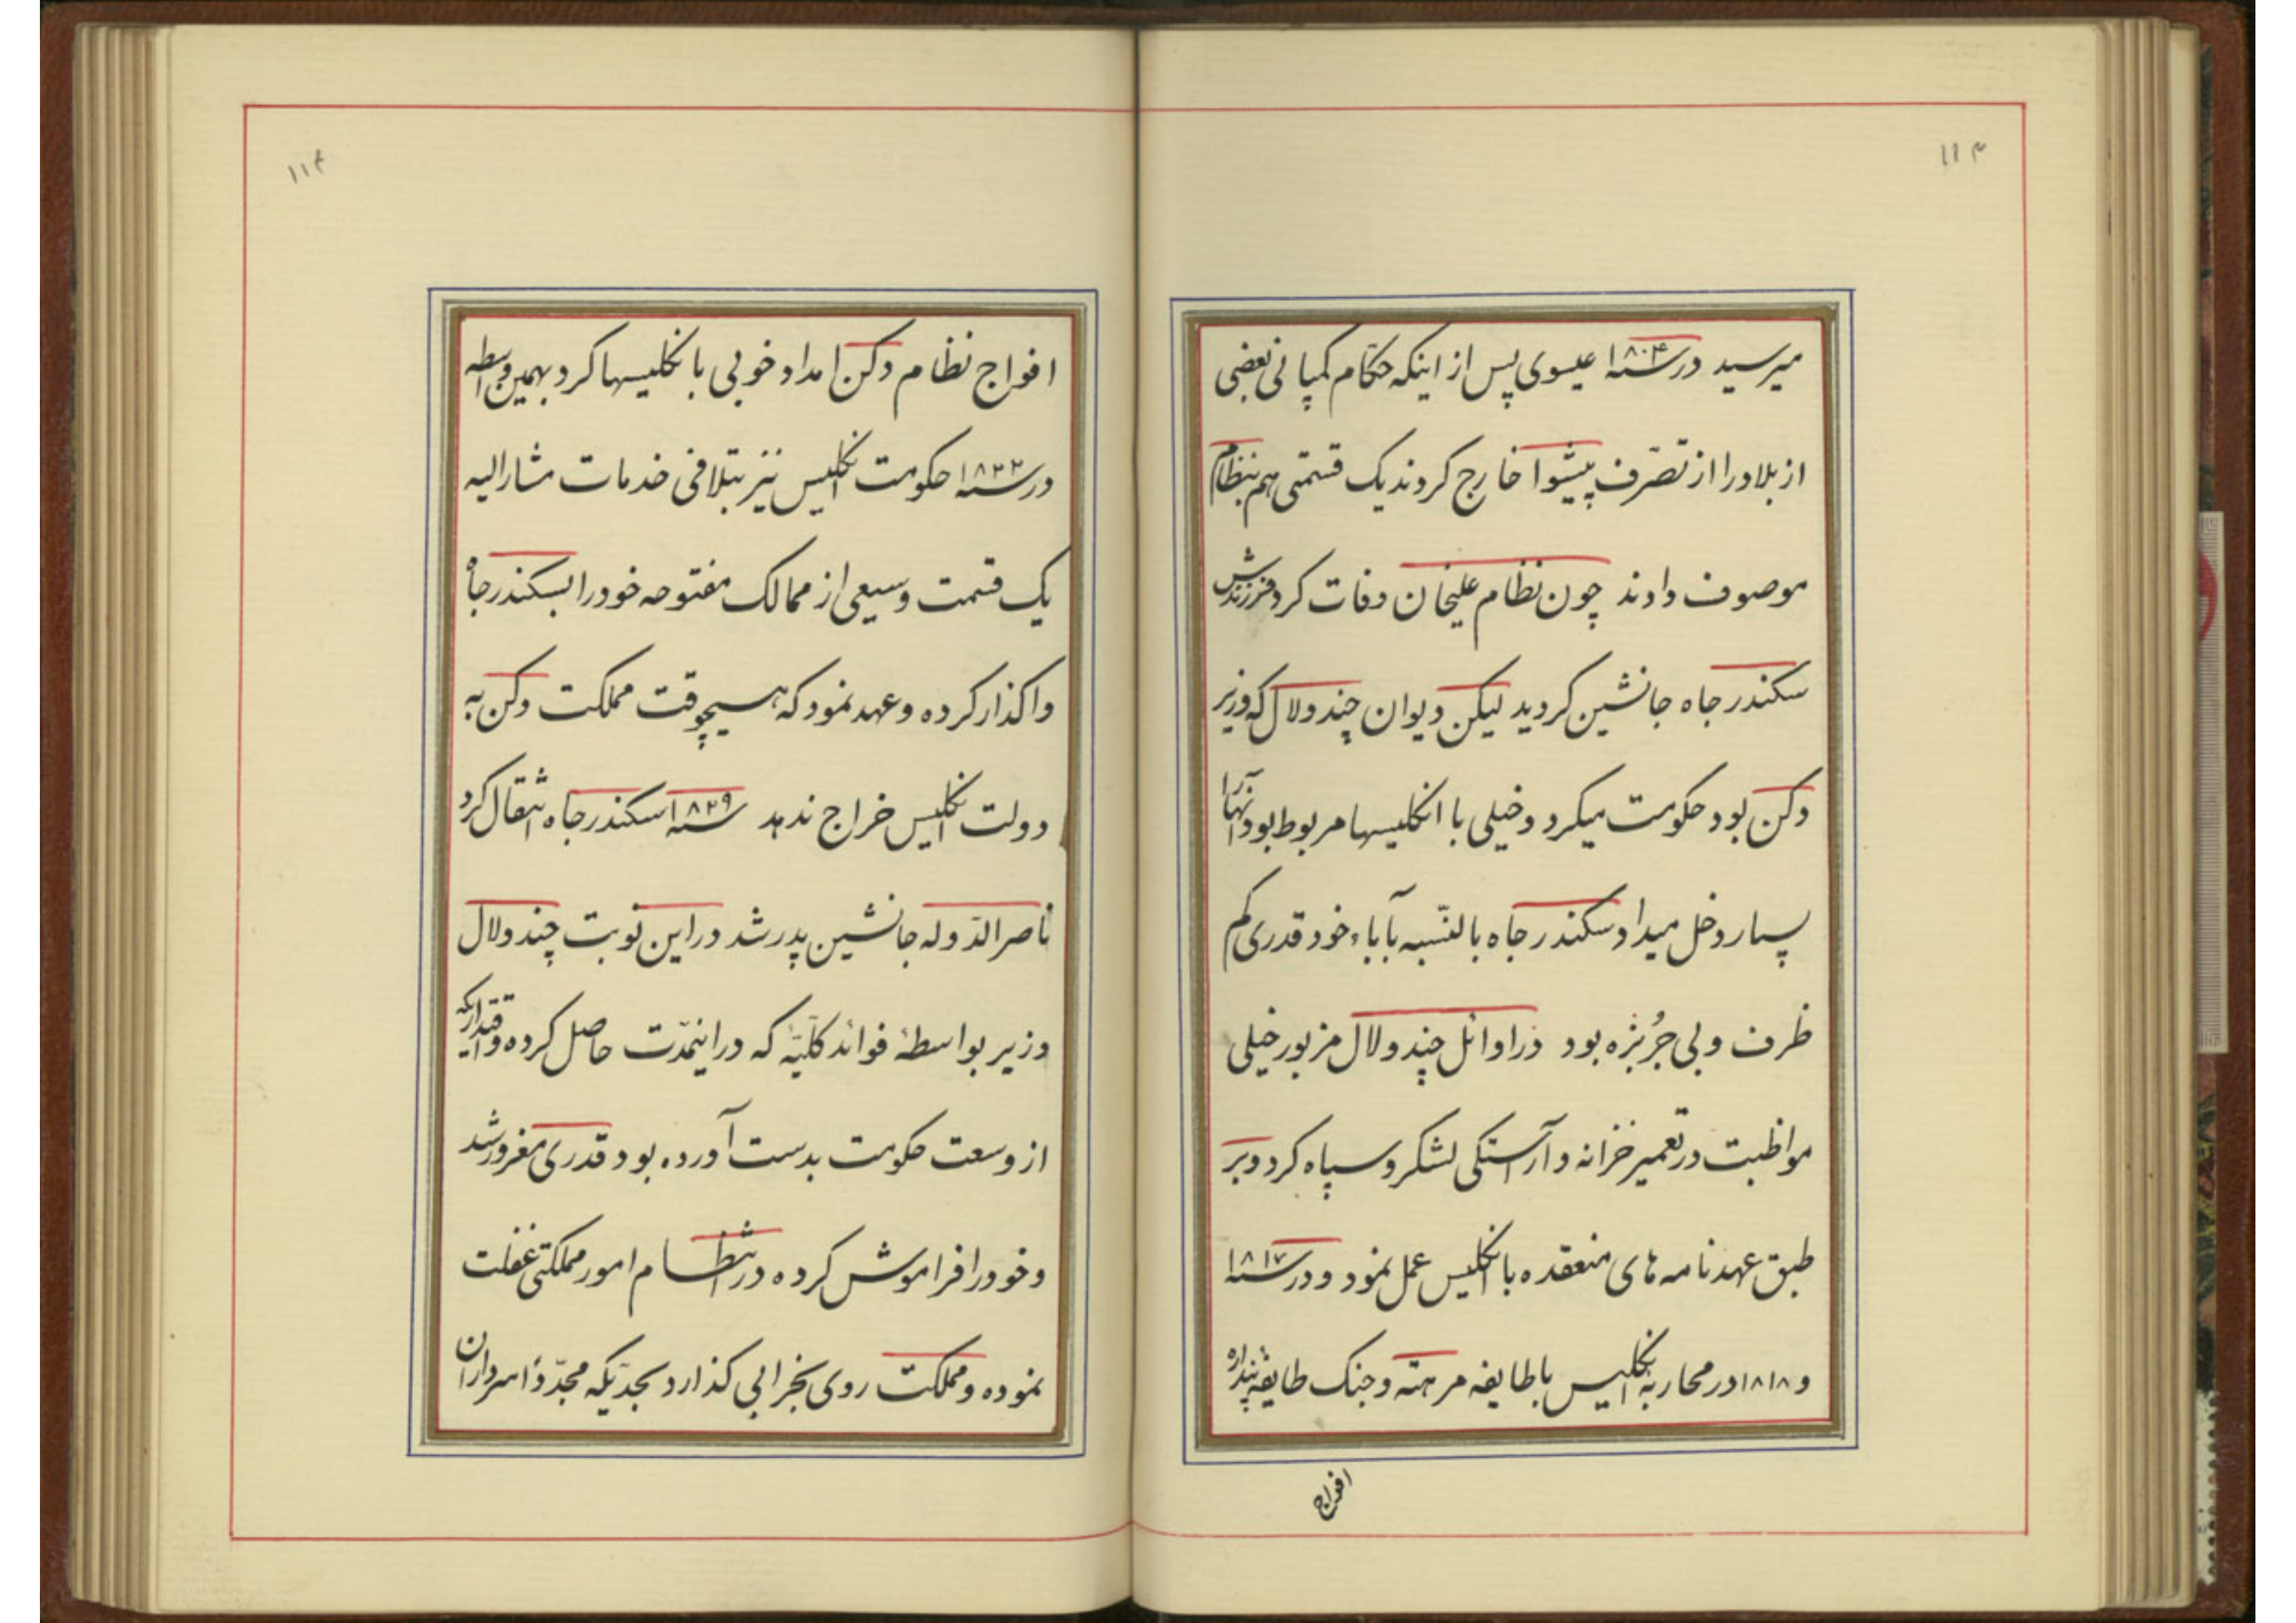 ۱۱۳
میرسید در سنه ۱۸۰۴ عیسوی پس از اینکه حکّام کمپانی بعضی
از بلاد را از تصرّف پیشوا خارج کردند یک قسمتی هم بنظام
موصوف دادند چون نظام علیخان وفات کرد فرزندش
سکندر جاه جانشین کردید لیکن دیوان چندولال که وزیر
دکن بود حکومت میکرد و خیلی با انکلیسها مربوط بود و آنها را
بسیار دخل میداد سکندر جاه بالنّسبه بآباء خود قدری کم
ظرف و بی جُربُزه بود در اوائل چندولال مزبور خیلی
مواظبت در تعمیر خزانه و آراستکی لشکر و سپاه کرد و بر
طبق عهدنامه های منعقده با انکلیس عمل نمود و در سنه ۱۸۱۷
و ۱۸۱۸ در محاربهٔ انکلیس با طایفه مرهته و جنک طایفه پنداره
افواج
۱۱۴
افواج نظام دکن امداد خوبی با نکلیسها کرد بهمین واسطه
در سنه ۱۸۲۲ حکومت انکلیس نیز بتلافی خدمات مشارالیه
یک قسمت وسیعی از ممالک مفتوحه خود را بسکندر جاه
واکذار کرده و عهد نمود که هیچوقت مملکت دکن به
دولت انکلیس خراج ندهد سنه ۱۸۲۹ سکندر جاه انتقال کرد
ناصر الدّوله جانشین پدر شد در این نوبت چندولال
وزیر بواسطهٔ فوائد کلّیّه که در اینمدّت حاصل کرده و اقتداریکه
از وسعت حکومت بدست آورده بود قدری مغرور شد
و خود را فراموش کرده در انتظام امور مملکتی غفلت
نموده و مملکت روی بخرابی کذارد بحدّیکه مجدّداً سرداران